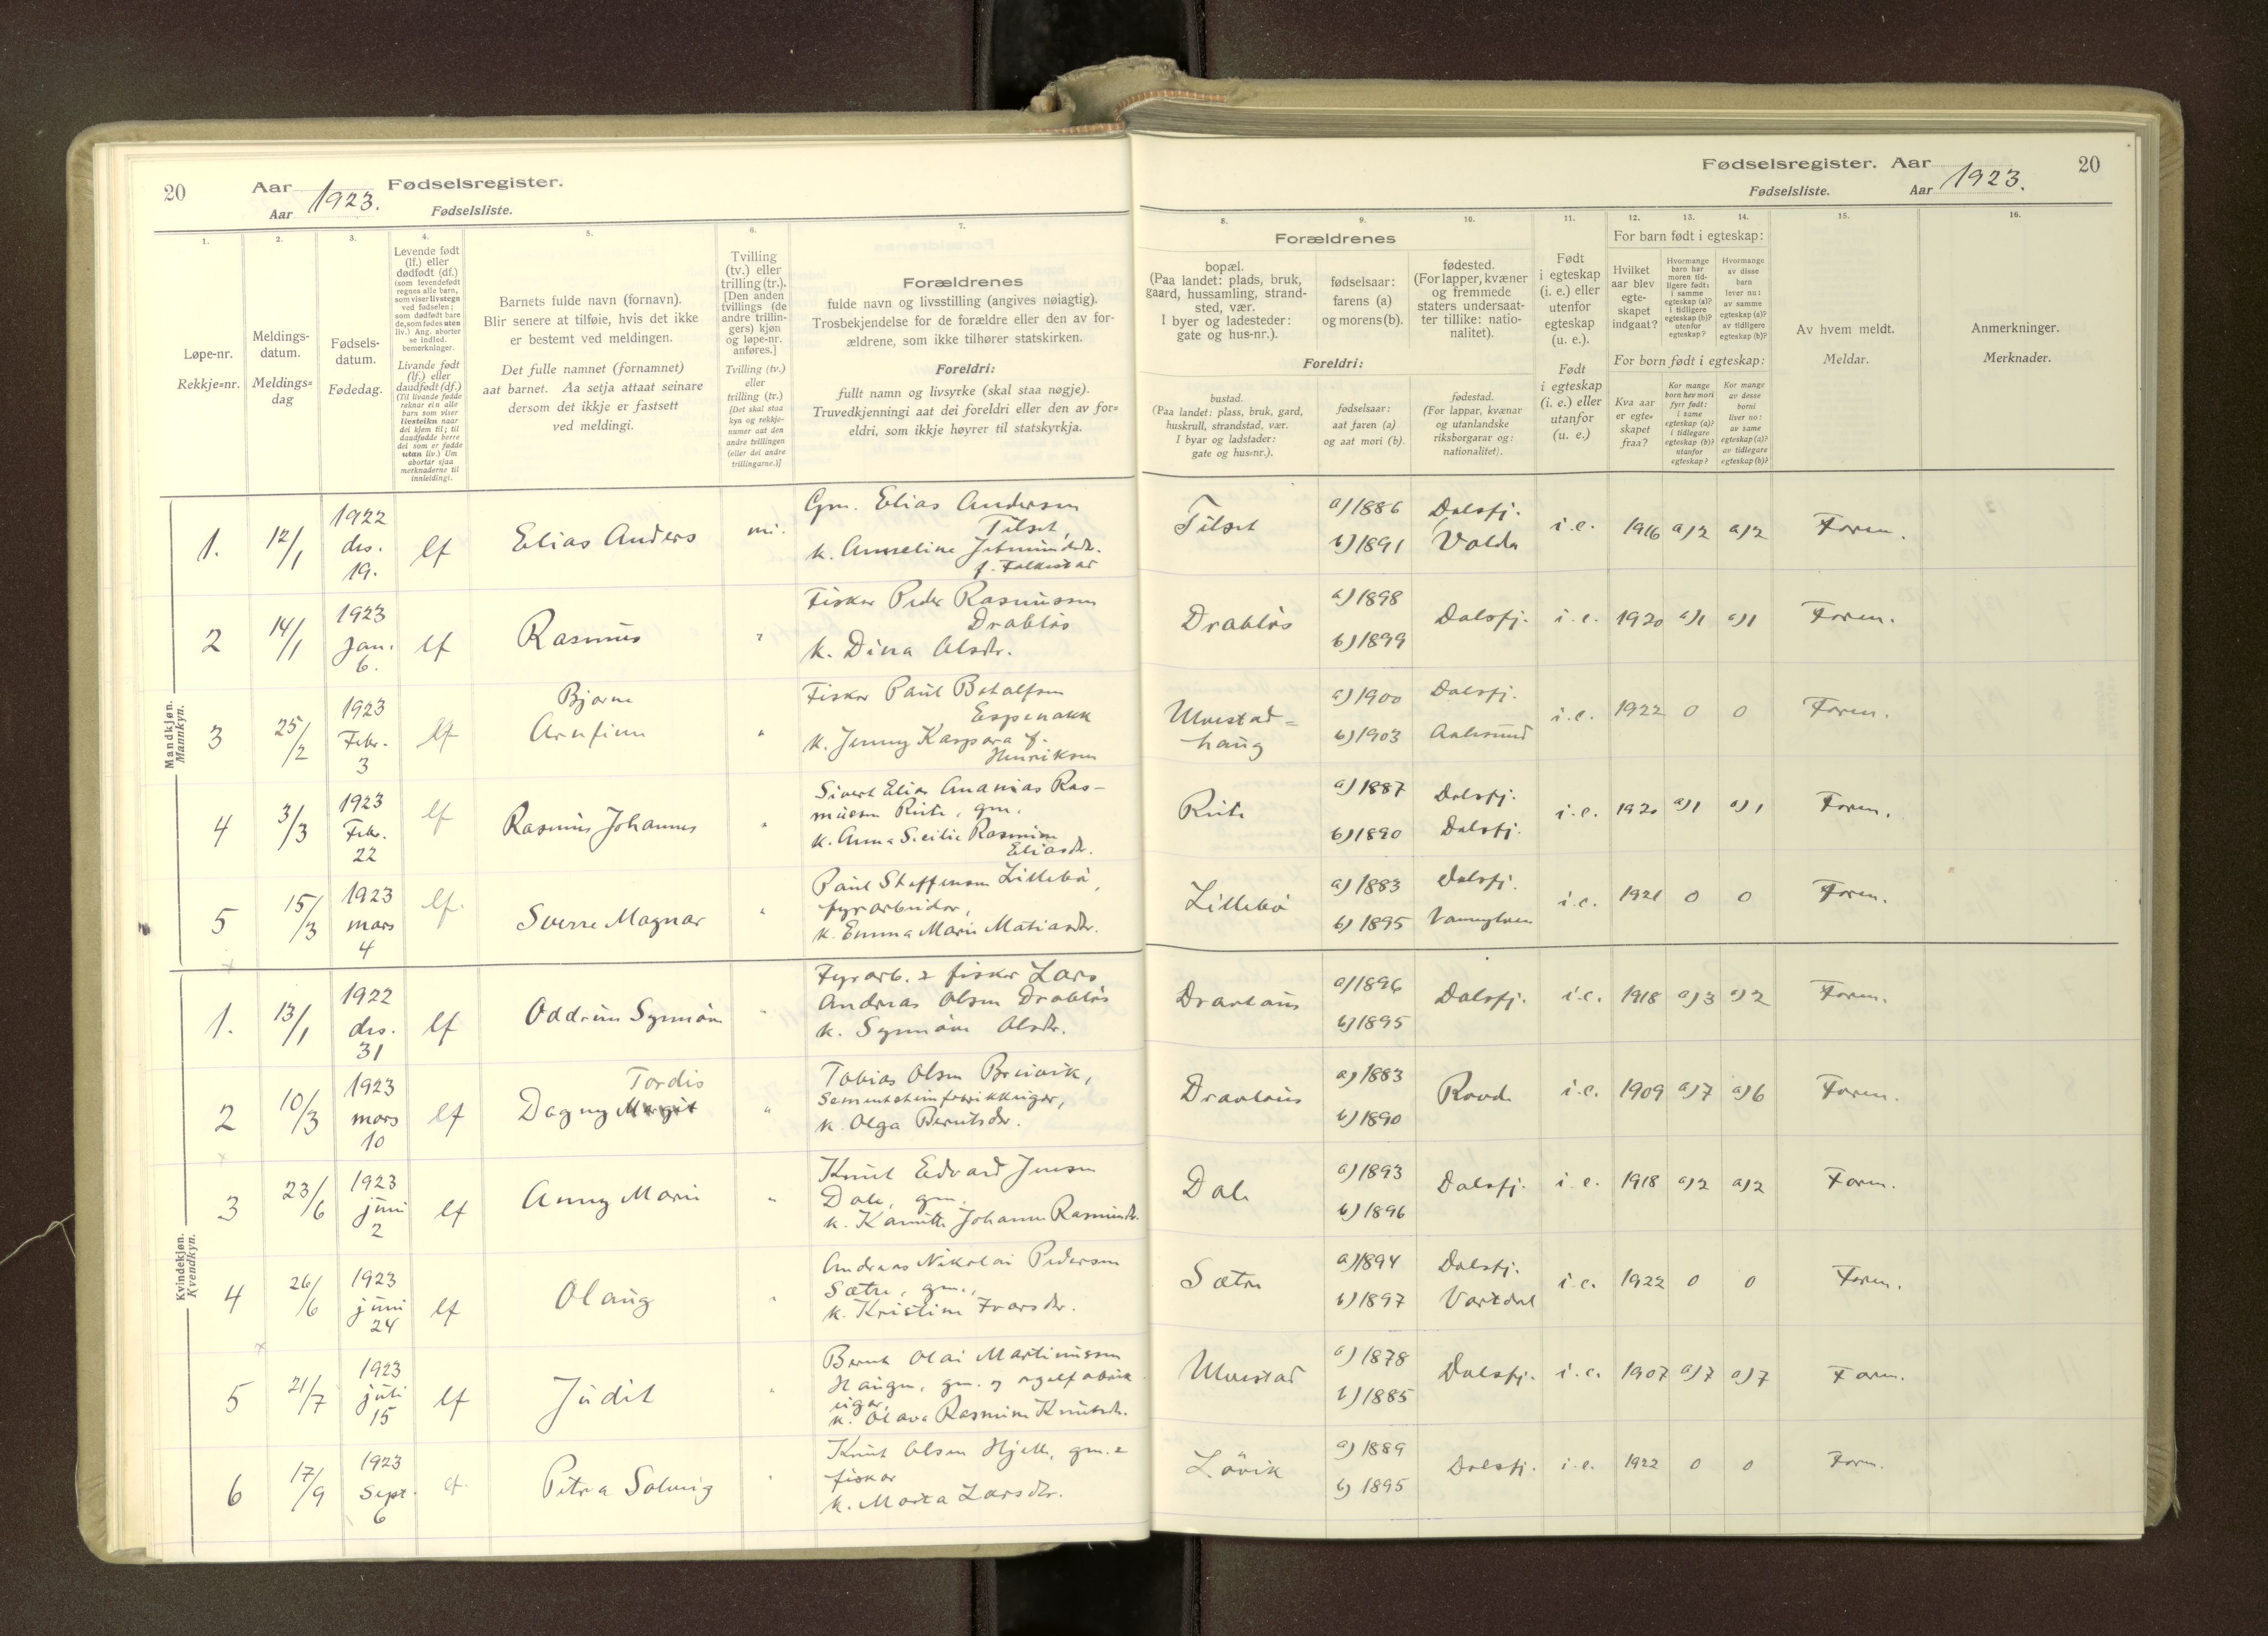 20
Aar 1923. Fødselsregister.
Aar Fødselsliste.
1. 2. 3. 4. 5. 6. 7.
Løpe-nr.
Rekkje=nr.
Meldings-
datum.
Meldings=
dag
Fødsels-
datum.
Fødedag.
Levende født
(lf.) eller
dødfødt (df.)
(som levendefødt
regnes alle barn,
som viser livstegn
ved fødselen;
som dødfødt bare
de, som fødes uten
liv.) Ang. aborter
se indled.
bemerkninger.
Livande født
(lf.) eller
daudfødt (df.)
(Til livande fødde
reknar ein alle
barn som viser
livsteikn naar
dei kjem til; til
daudfødde berre
dei som er fødde
utan liv.) Um
abortar sjaa
merknaderne til
innleidingi.
Barnets fulde navn (fornavn).
Blir senere at tilføie, hvis det ikke
er bestemt ved meldingen.
Det fulle namnet (fornamnet)
aat barnet. Aa setja attaat seinare
dersom det ikkje er fastsett
ved meldingi.
Tvilling
(tv.) eller
trilling (tr.).
[Den anden
tvillings (de
andre trillin-
gers) kjøn
og løpe-nr.
anføres.]
Tvilling (tv.)
eller
trilling (tr.)
[Det skal staa
kyn og rekkje-
numer aat den
andre tvillingen
(eller dei andre
trillingarne.)]
Forældrenes
fulde navn og livsstilling (angives nøiagtig).
Trosbekjendelse for de forældre eller den av for-
ældrene, som ikke tilhører statskirken.
Foreldri:
fullt namn og livsyrke (skal staa nøgje).
Truvedkjenningi aat dei foreldri eller den av for=
eldri, som ikkje høyrer til statskyrkja.
Mandkjøn.
Mannkyn.
1. 12/1 1922 des. 19. lf Elias Anders
Gm. Elias Andersen
Tilset,
f. Folkestad
2 14/1 1923 Jan. 6. lf Rasmus "
Fisker Peder Rasmussen
Drabløs
k. Dina Olsdr.
3 25/2 1923 Febr. 3 lf Bjarne
Arnfinn "
Fisker Paul
k. Jenny Kaspara f.
Henriksen
4 3/3 1923 Febr. 22 lf Rasmus Johannes "
Sivert Elias Ananias Ras-
mussen gm.
k. Anna Sicilie Rasmine
Eliasdr.
5 15/3 1923 mars 4 lf. Sverre Magnar "
Paul Steffensen Lillebø,
fyrarbeider,
k. Emma Marie Matiasdr.
Kvindekjøn.
Kvendkyn.
1. 13/1 1922 des. 31 lf Oddrun Synnøve "
Fyrarb. & fisker Lars
Andreas Olsen Drabløs
k. Synnøve Olsdr.
2 10/3 1923 mars 10 lf Tordis
Dagny Margit "
Tobias Olsen Breivik,
k. Olga Berntsdr.
3 23/6 1923 juni 2 lf Anny Marie "
Knut Edvard Jensen
Dale, gm.
Johanne Rasmusdr.
4 26/6 1923 juni 24 lf Olaug "
Andreas Nikolai Pedersen
Sætre, gm.,
k. Kristine Ivarsdr.
5 21/7 1923 juli 15 lf Judit "
Bernt Olai Martinussen
Haugen, gm. og
eigar,
k. Olava Rasmine Knutsdr.
6 17/9 1923 Sept. 6 lf. Petra Solveig "
Knut Olsen Hjelle, gm. &
fisker
k. Marta Larsdr.
Fødselsregister. Aar 1923. 20
Fødselsliste. Aar
8. 9. 10. 11. 12. 13. 14. 15. 16.
Forældrenes
bopæl.
(Paa landet: plads, bruk,
gaard, hussamling, strand-
sted, vær.
I byer og ladesteder:
gate og hus-nr.).
fødselsaar:
farens (a)
og morens (b).
fødested.
(For lapper, kvæner
og fremmede
staters undersaat-
ter tillike: natio-
nalitet).
Foreldri:
bustad.
(Paa landet: plass, bruk, gard,
huskrull, strandstad, vær.
I byar og ladstader:
gate og hus=nr.).
fødselsaar:
aat faren (a)
og aat mori (b).
fødestad.
(For lappar, kvænar
og utanlandske
riksborgarar og:
nationalitet).
Født
i egteskap
(i. e.) eller
utenfor
egteskap
(u. e.).
Født
i egteskap
(i. e.) eller
utanfor
(u. e.)
For barn født i egteskap:
Hvilket
aar blev
egte-
skapet
indgaat?
Hvormange
barn har
moren tid-
ligere født:
i samme
egteskap (a)?
i tidligere
egteskap (b)?
utenfor
egteskap?
Hvormange
av disse
barn
lever nu:
av samme
egteskap (a)?
av tidligere
egteskap (b)?
For born født i egteskap:
Kva aar
er egte=
skapet
fraa?
Kor mange
born hev mori
fyrr født:
i same
egteskap (a)?
i tidlegare
egteskap (b)?
utanfor
egteskap?
Kor mange
av desse
borni
liver no:
av same
egteskap (a)?
av tidlegare
egteskap (b)?
Av hvem meldt.
Meldar.
Anmerkninger.
Merknader.
Tilset a) 1886 b) 1891 Dalsfj. Volda i.e. 1916 a) 2 a) 2 Foren.
Drabløs a) 1898 b) 1899 Dalsfj. i.e. 1920 a) 1 a) 1 Foren.
Ulvestad=
haug a) 1900 b) 1903 Dalsfj. Aalesund i.e. 1922 0 0 Foren.
a) 1887 b) 1890 Dalsfj. Dalsfj. i.e. 1920 a) 1 a) 1 Foren.
Lillebø a) 1883 b) 1895 Dalsfj. Vannylven i.e. 1921 0 0 Foren.
a) 1896 b) 1895 Dalsfj. i.e. 1918 a) 3 a) 2 Foren.
a) 1883 b) 1890 Rovde i.e. 1909 a) 7 a) 6 Foren.
Dale a) 1893 b) 1896 Dalsfj. i.e. 1918 a) 2 a) 2 Foren.
Sætre a) 1894 b) 1897 Dalsfj. Vartdal i.e. 1922 0 0 Foren.
Ulvestad a) 1878 b) 1885 Dalsfj. i.e. 1907 a) 7 a) 7 Foren.
Løvik a) 1889 b) 1895 Dalsfj. i.e. 1922 0 0 Foren.